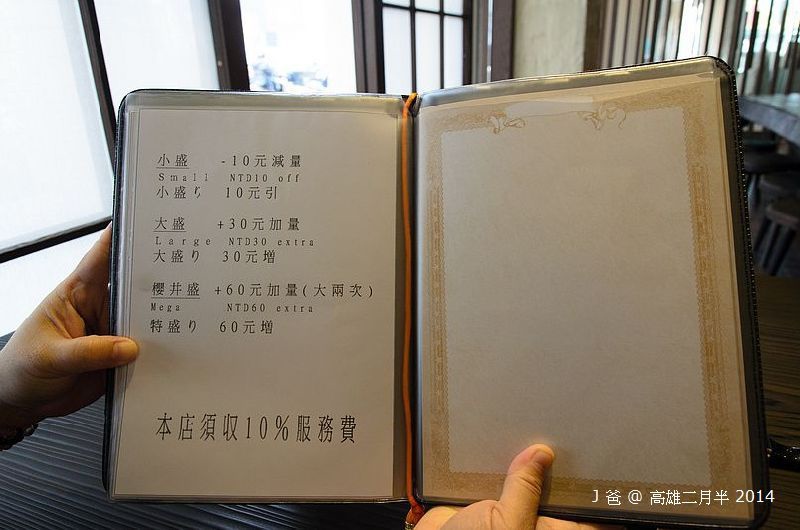 小盛 -10元減量
Small NTD10 off
小盛り 10元引
大盛 +30元加量
Large NTD30 extra
大盛り 30元増
櫻井盛 +60元加量(大兩次)
Mega NTD60 extra
特盛り 60元増
本店須収10%服務費
J 爸 @ 高雄二月半 2014